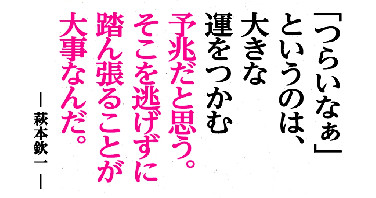 「つらいなぁ」
というのは、
大きな
運をつかむ
予兆だと思う。
そこを逃げずに
踏ん張ることが
大事なんだ。
― 萩本欽一 ―